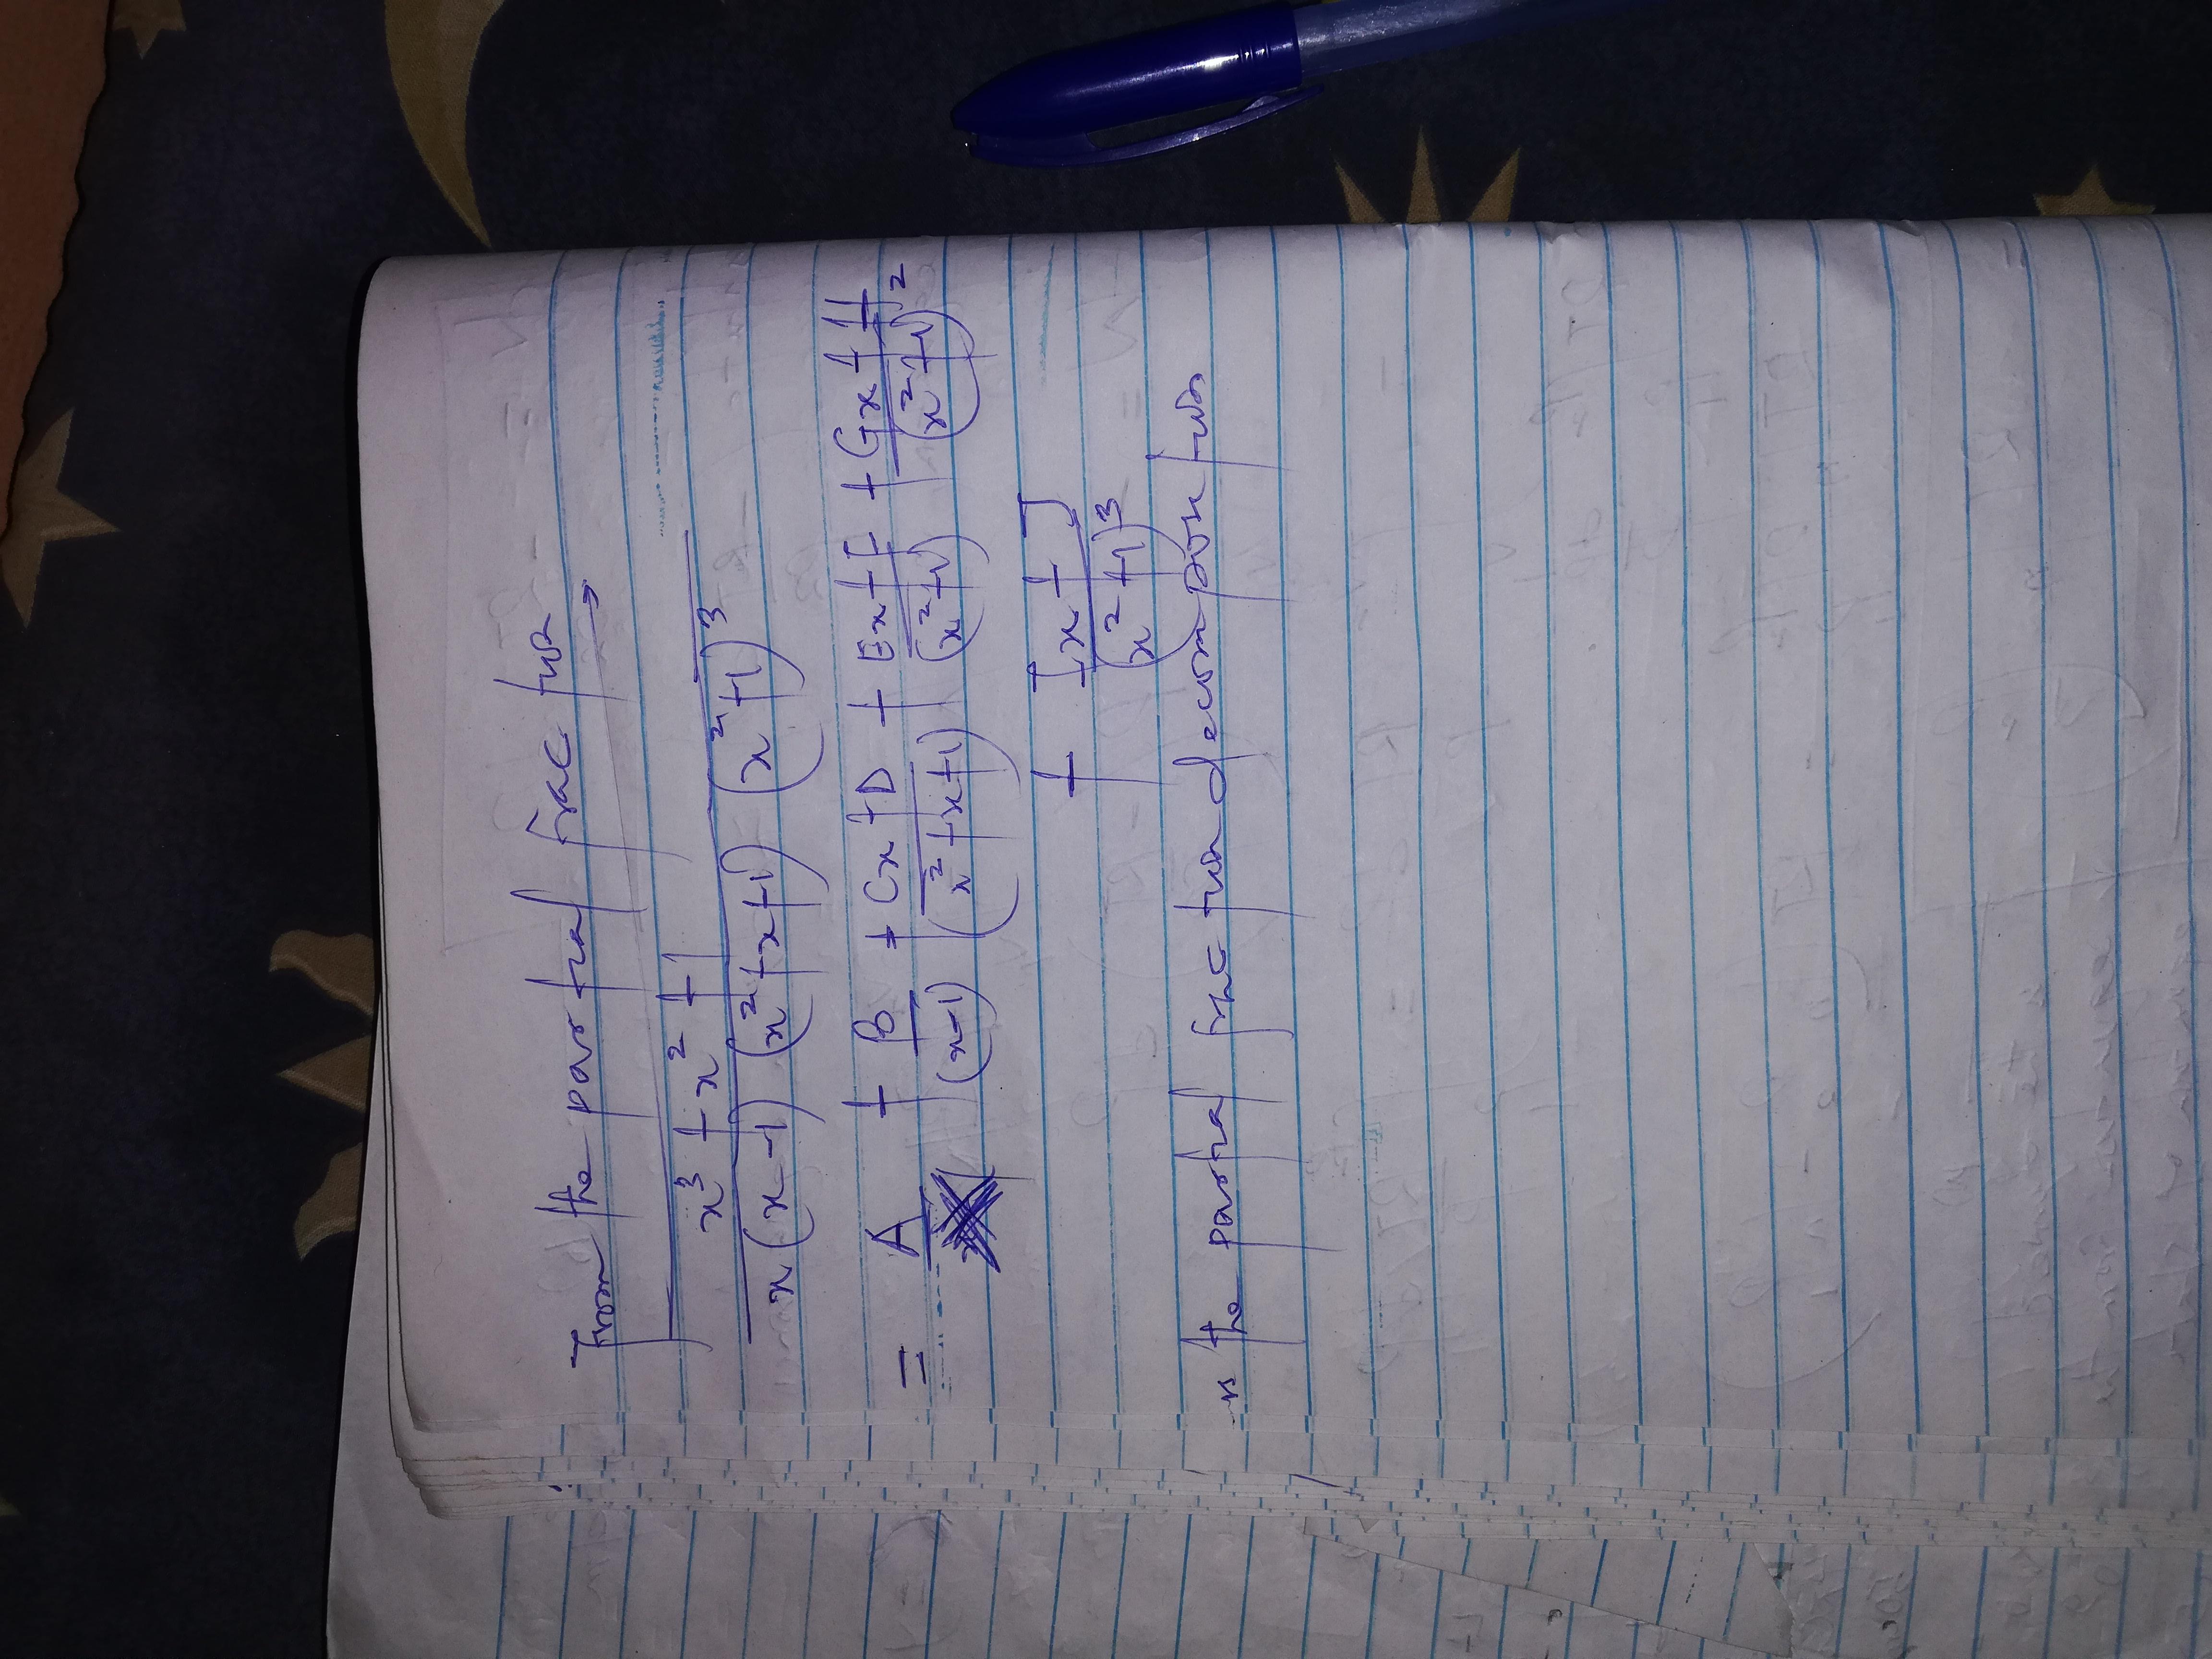 From the partial fraction
x³ + x² + 1
x(x-1) (x²+x+1) (x²+1)³
= A + B + Cx+D + Ex+F + Gx+H
(x-1) (x²+x+1) (x²+1) (x²+1)²
+ Ix+J
(x²+1)³
is the partial fraction decomposition